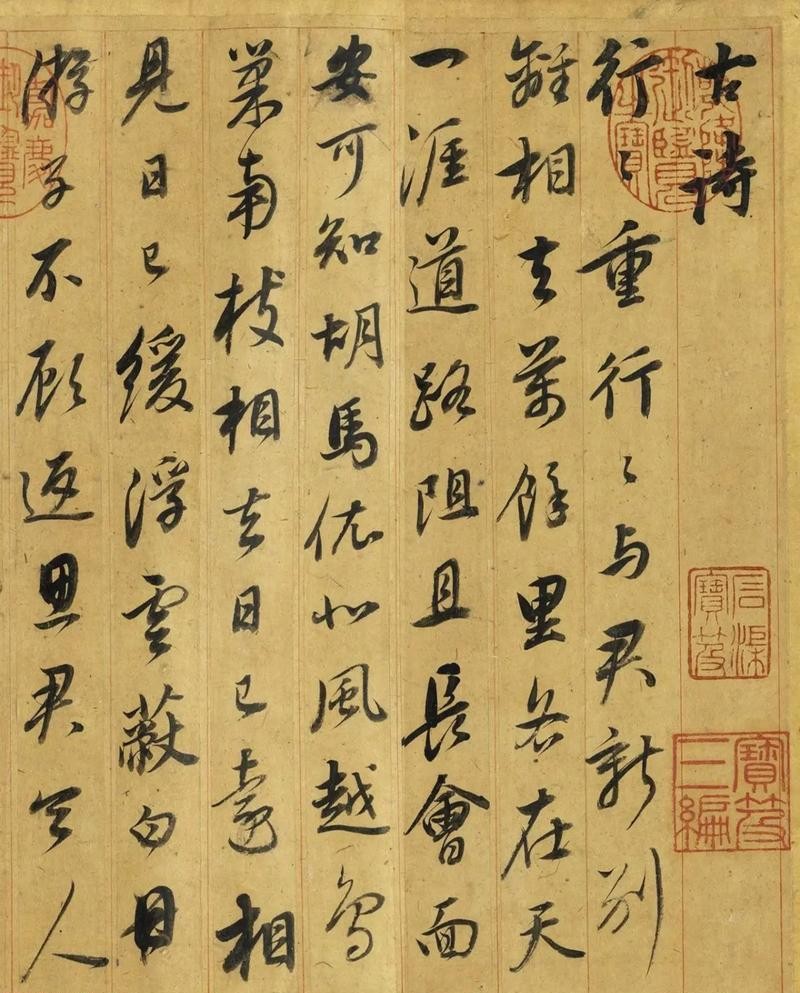 古詩
行〻重行〻与君新别
離相去萬餘里各在天
一涯道路阻且長會面
安可知胡馬依北風越鳥
巢南枝相去日已遠相
見日已緩浮雲蔽白日
游子不顧返思君令人
石渠寶笈
寶笈三編